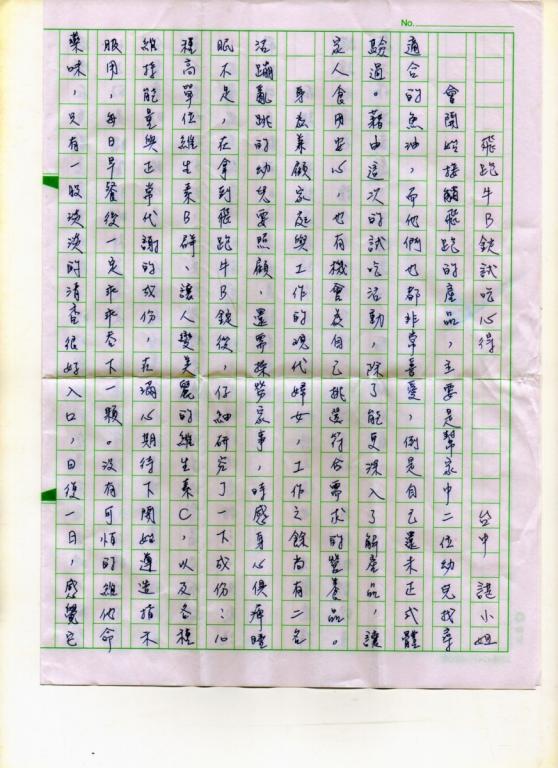 No.
飛跑牛B錠試吃心得　台中　諶小姐
會開始接觸飛跑的產品，主要是幫家中二位幼兒找尋
適合的魚油，而他們也都非常喜愛，倒是自己還未正式體
驗過。藉由這次的試吃活動，除了能更深入了解產品，讓
家人食用安心，也有機會為自己挑選符合需求的營養品。
身為兼顧家庭與工作的現代婦女，工作之餘尚有二名
活蹦亂跳的幼兒要照顧，還需操勞家事，時感身心俱疲睡
眠不足，在拿到飛跑牛B錠後，仔細研究了一下成份：10
種高單位維生素B群、讓人變美麗的維生素C，以及各種
維持能量與正常代謝的成份，在滿心期待下開始遵造指示
服用，每日早餐後一定乖乖吞下一顆。沒有可怕的維他命
藥味，只有一股淡淡的清香很好入口，日復一日，感覺它